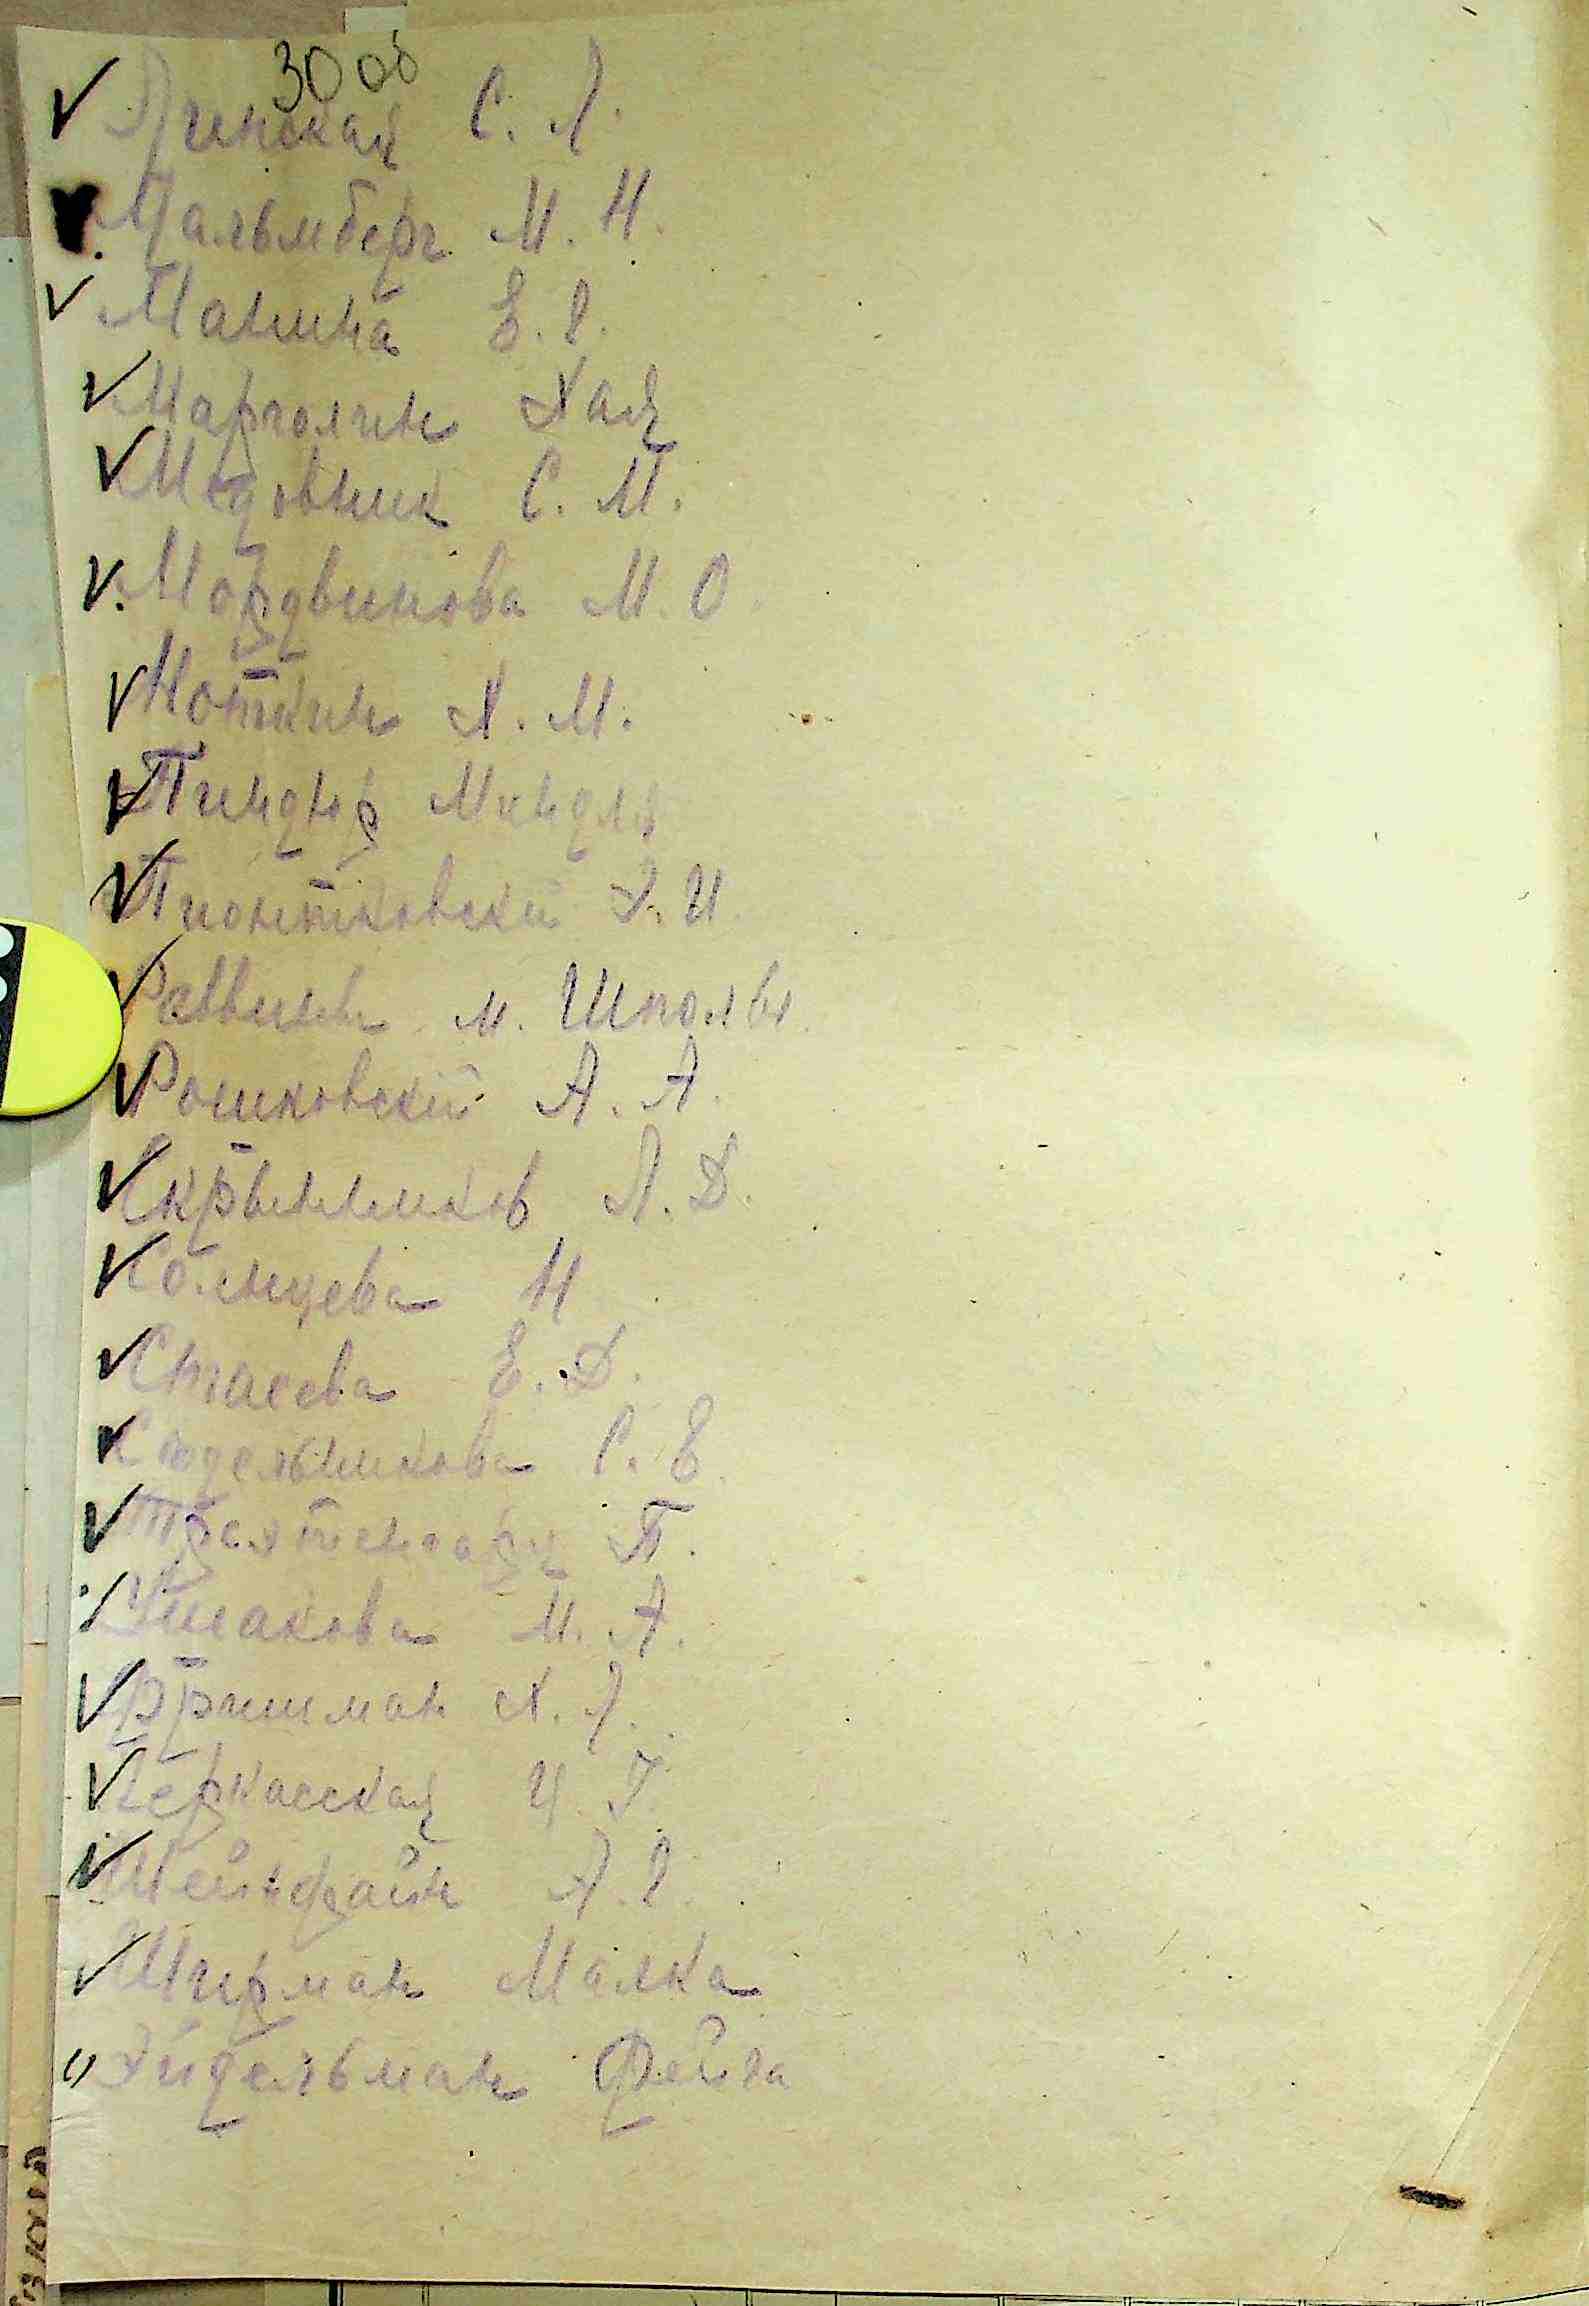 30 об
Линская С. Л.
Мальмберг М. Н.
Манина Е. І.
Марголин Хая
Медовник С. М.
Мордвинова М. О.
Ноткин Х. М.
Пиндюр Миндля
Пионтковский И.
Раввину м. Шполы
Рошковский А. А.
Скрынников Л. Д.
Солнцева Н
Стасева Е. Д.
Сидельникова С. Е.
Трахтенгарц П.
Ушакова М. А.
Фришман Х. Л.
Черкасская Ц. Г.
Шейнфайн А. І.
Ширман Малка
Эйдельман Фейга